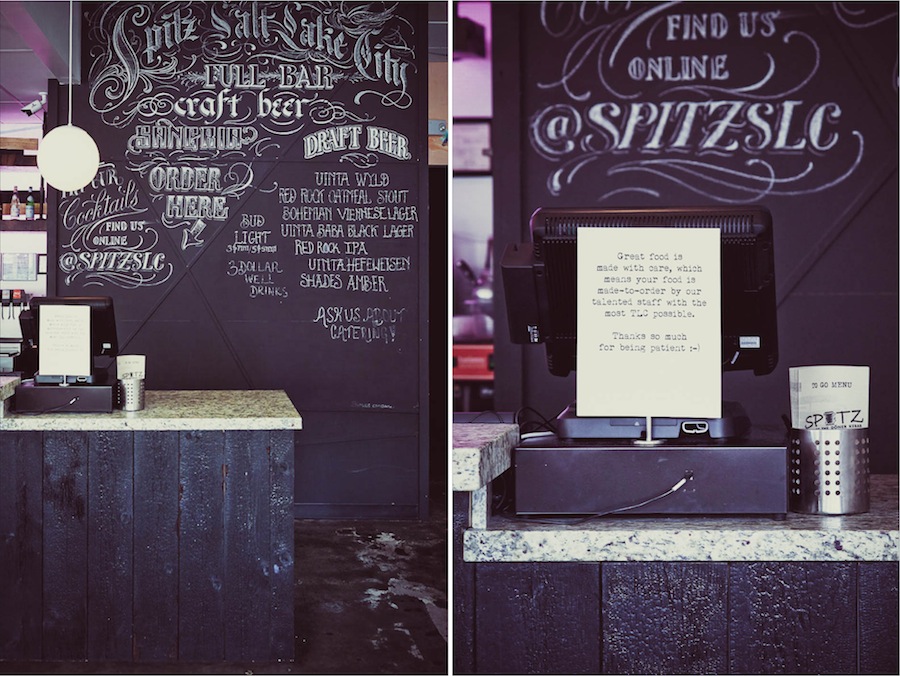 Spitz Salt Lake City
FULL BAR
craft beer
SANGRIA
ORDER
HERE
Cocktails
FIND US
ONLINE
@SPITZSLC
BUD
LIGHT
3 DOLLAR
WELL
DRINKS
DRAFT BEER
UINTA WYLD
RED ROCK OATMEAL STOUT
BOHEMIAN VIENNESE LAGER
UINTA BABA BLACK LAGER
RED ROCK IPA
UINTA HEFEWEISEN
SHADES AMBER
ASK US ABOUT
CATERING!
FIND US
ONLINE
@SPITZSLC
Great food is
made with care, which
means your food is
made-to-order by our
talented staff with the
most TLC possible.
Thanks so much
for being patient ;-)
TO GO MENU
SPITZ